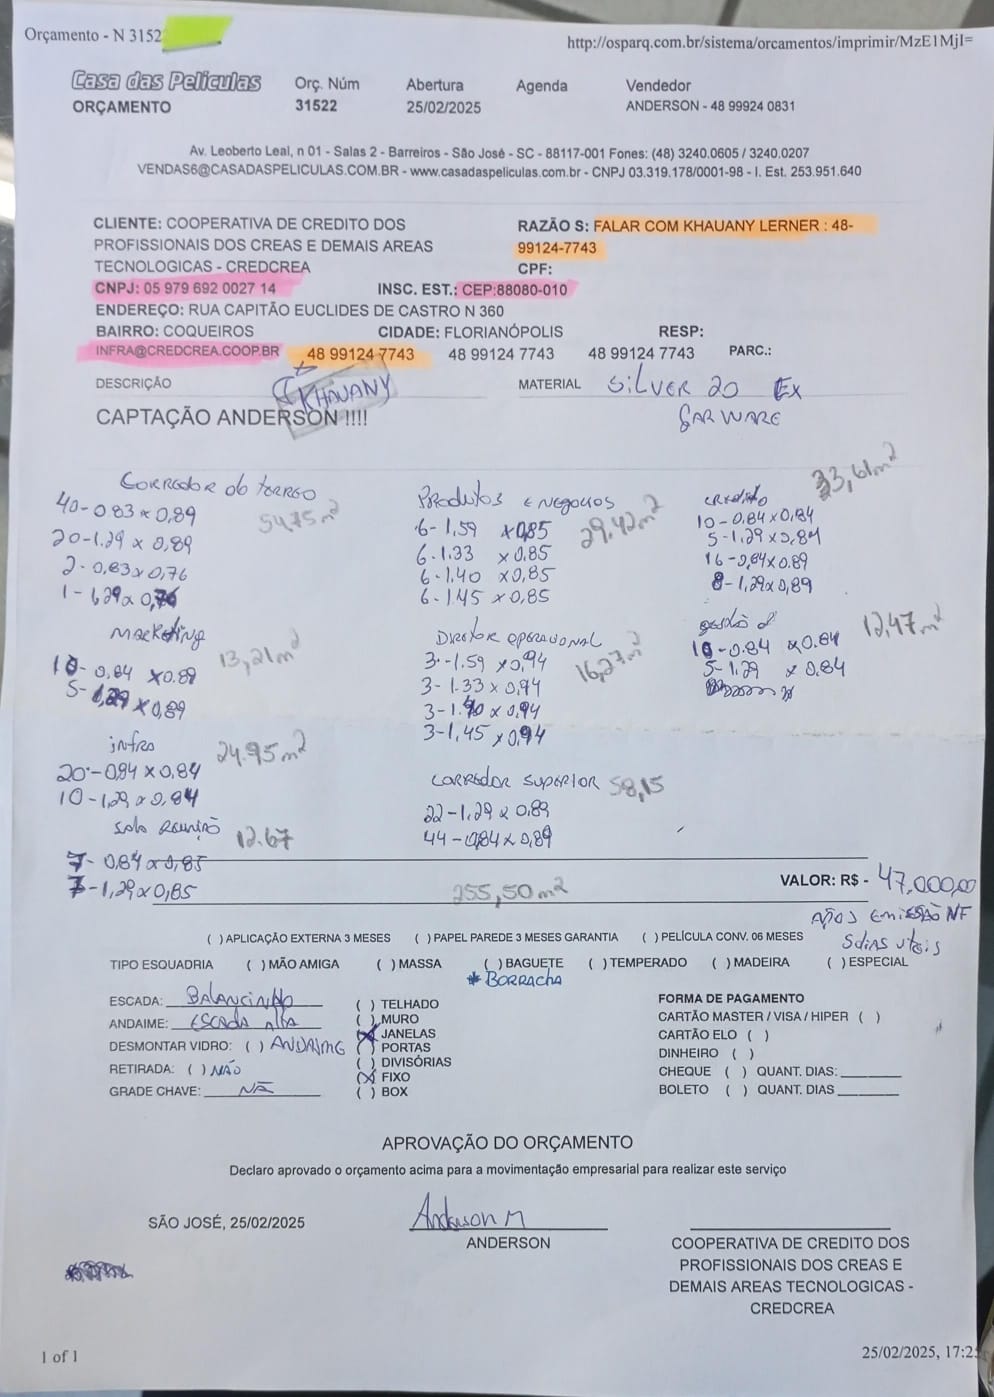 Orçamento - N 3152
http://osparq.com.br/sistema/orcamentos/imprimir/MzE1MjI=
Casa das Películas
ORÇAMENTO
Orç. Núm
31522
Abertura
25/02/2025
Agenda
Vendedor
ANDERSON - 48 99924 0831
Av. Leoberto Leal, n 01 - Salas 2 - Barreiros - São José - SC - 88117-001 Fones: (48) 3240.0605 / 3240.0207
VENDAS6@CASADASPELICULAS.COM.BR - www.casadaspeliculas.com.br - CNPJ 03.319.178/0001-98 - I. Est. 253.951.640
CLIENTE: COOPERATIVA DE CREDITO DOS
PROFISSIONAIS DOS CREAS E DEMAIS AREAS
TECNOLOGICAS - CREDCREA
RAZÃO S: FALAR COM KHAUANY LERNER : 48-
99124-7743
CPF:
CNPJ: 05 979 692 0027 14
INSC. EST.: CEP:88080-010
ENDEREÇO: RUA CAPITÃO EUCLIDES DE CASTRO N 360
BAIRRO: COQUEIROS
CIDADE: FLORIANÓPOLIS
RESP:
INFRA@CREDCREA.COOP.BR
48 99124 7743
48 99124 7743
48 99124 7743
PARC.:
DESCRIÇÃO
KHAUANY
MATERIAL
SILVER 20 EX
GARWARE
CAPTAÇÃO ANDERSON !!!!
CORREDOR do TERREO
54,75m²
40-0.83 x 0,89
20-1.29 x 0,89
2-0,83 x 0,76
1-1,29 x 0,76
Marketing
13,21m²
10-0,84 x 0.89
5-1,29 x 0,89
infra
24.95m²
20-0,84 x 0,84
10-1,29 x 0,84
Sala Reunião
12.67
7-0,84 x 0,85
7-1,29 x 0,85
PRODUTOS E NEGOCIOS
29,42m²
6-1,59 x 0,85
6-1.33 x 0.85
6-1.40 x 0,85
6-1.45 x 0,85
DIRETOR OPERACIONAL
16,27m²
3-1.59 x 0,94
3-1.33 x 0,94
3-1.40 x 0,94
3-1,45 x 0,94
CORREDOR SUPERIOR
58,15
22-1,29 x 0,89
44-0,84 x 0,89
255,50m²
credito
33,61m²
10-0,84 x 0,84
5-1,29 x 0,84
16-0,84 x 0.89
8-1,29 x 0,89
gestão d
12,47m²
10-0.84 x 0.84
5-1.29 x 0,84
VALOR: R$ - 47.000,00
APÓS EMISSÃO NF
5 dias uteis
( ) APLICAÇÃO EXTERNA 3 MESES ( ) PAPEL PAREDE 3 MESES GARANTIA ( ) PELÍCULA CONV. 06 MESES
TIPO ESQUADRIA ( ) MÃO AMIGA ( ) MASSA ( ) BAGUETE ( ) TEMPERADO ( ) MADEIRA ( ) ESPECIAL
* BORRACHA
ESCADA: BALANCINHO
ANDAIME: ESCADA ALTA
DESMONTAR VIDRO: ( ) ANDAIME
RETIRADA: ( ) NÃO
GRADE CHAVE: NÃ
( ) TELHADO
( ) MURO
(X) JANELAS
( ) PORTAS
( ) DIVISÓRIAS
(X) FIXO
( ) BOX
FORMA DE PAGAMENTO
CARTÃO MASTER / VISA / HIPER ( )
CARTÃO ELO ( )
DINHEIRO ( )
CHEQUE ( ) QUANT. DIAS:
BOLETO ( ) QUANT. DIAS
APROVAÇÃO DO ORÇAMENTO
Declaro aprovado o orçamento acima para a movimentação empresarial para realizar este serviço
SÃO JOSÉ, 25/02/2025
Anderson M
ANDERSON
COOPERATIVA DE CREDITO DOS
PROFISSIONAIS DOS CREAS E
DEMAIS AREAS TECNOLOGICAS -
CREDCREA
1 of 1
25/02/2025, 17:2